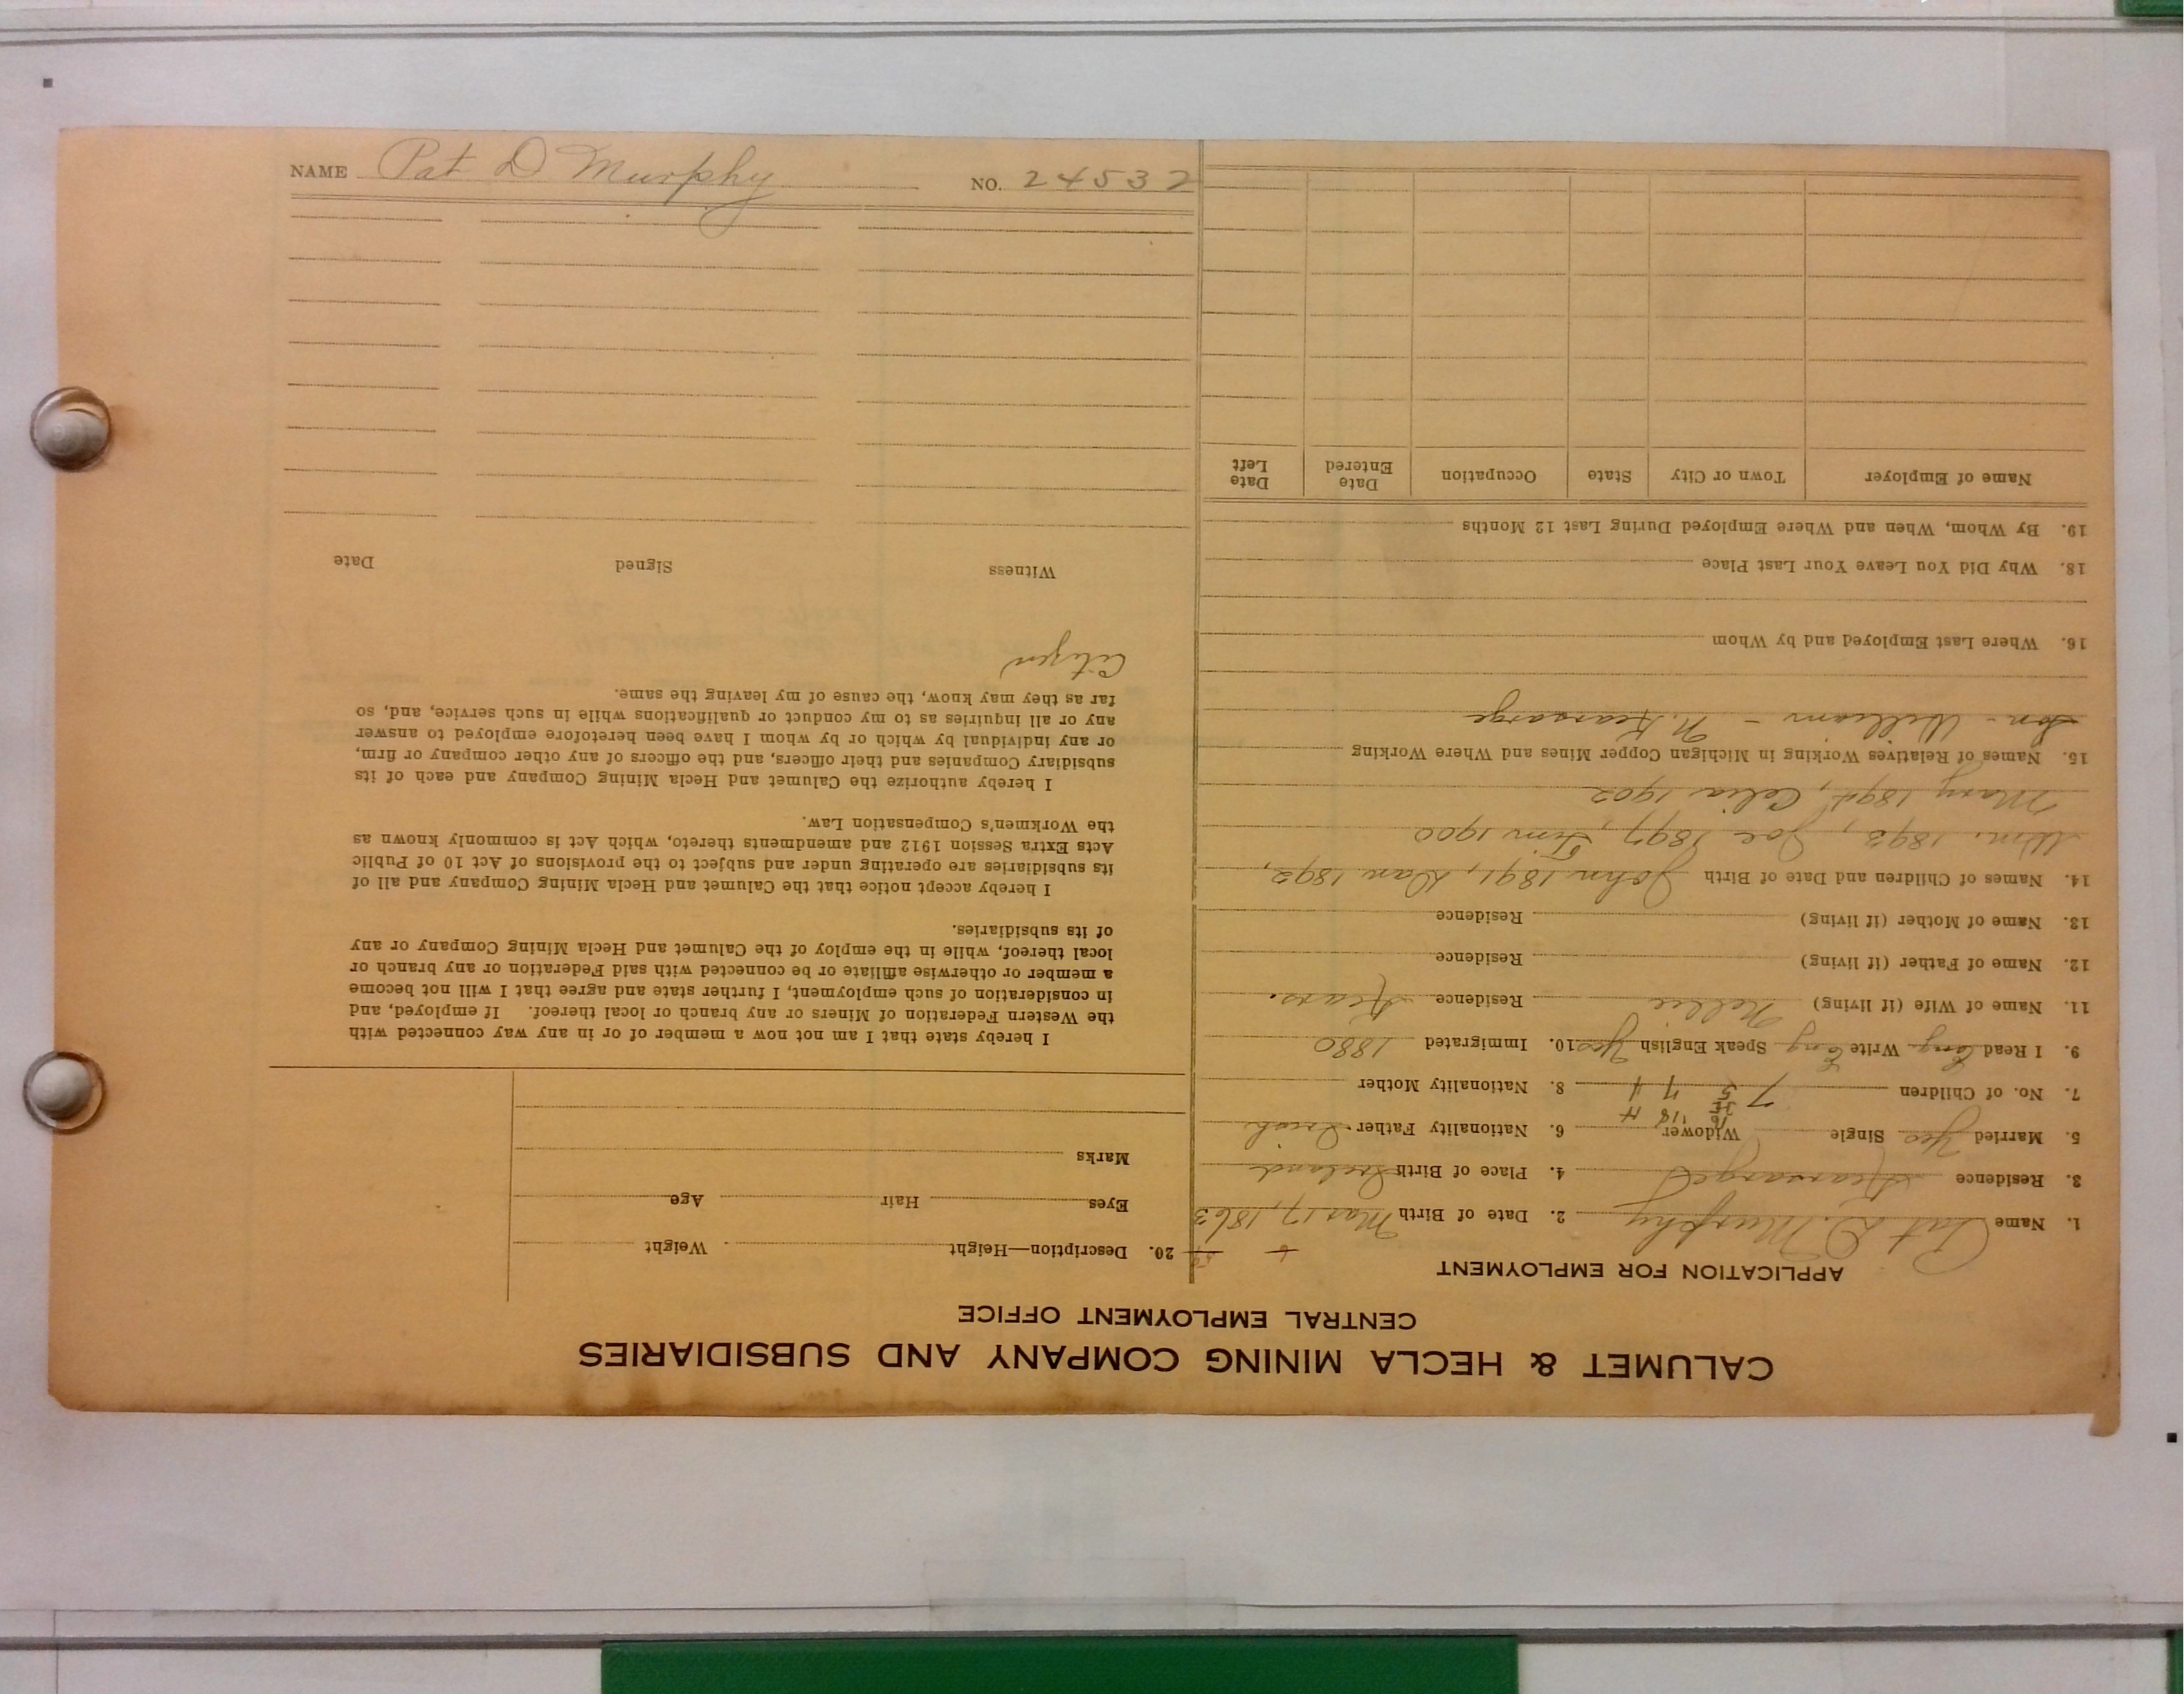 NAME Pat D Murphy NO. 24532
CALUMET & HECLA MINING COMPANY AND SUBSIDIARIES
CENTRAL EMPLOYMENT OFFICE
APPLICATION FOR EMPLOYMENT
1. Name Pat D. Murphy 2. Date of Birth Mar 17, 1863
3. Residence Kearsarge 4. Place of Birth Ireland
5. Married Yes Single Widower 6. Nationality Father Irish
7. No. of Children 7 8. Nationality Mother
9. I Read Eng Write Eng Speak English Yes 10. Immigrated 1880
11. Name of Wife (if living) Nellie Residence Kears.
12. Name of Father (if living) Residence
13. Name of Mother (if living) Residence
14. Names of Children and Date of Birth John 1891, Dan 1892,
Wm. 1893, Joe 1897, Tim 1900
Mary 1894, Celia 1902
15. Names of Relatives Working in Michigan Copper Mines and Where Working
Son - William - N. Kearsarge
16. Where Last Employed and by Whom
18. Why Did You Leave Your Last Place
19. By Whom, When and Where Employed During Last 12 Months
Name of Employer Town or City State Occupation Date Entered Date Left
20. Description—Height Weight
Eyes Hair Age
Marks
I hereby state that I am not now a member of or in any way connected with
the Western Federation of Miners or any branch or local thereof. If employed, and
in consideration of such employment, I further state and agree that I will not become
a member or otherwise affiliate or be connected with said Federation or any branch or
local thereof, while in the employ of the Calumet and Hecla Mining Company or any
of its subsidiaries.
I hereby accept notice that the Calumet and Hecla Mining Company and all of
its subsidiaries are operating under and subject to the provisions of Act 10 of Public
Acts Extra Session 1912 and amendments thereto, which Act is commonly known as
the Workmen's Compensation Law.
I hereby authorize the Calumet and Hecla Mining Company and each of its
subsidiary Companies and their officers, and the officers of any other company or firm,
or any individual by which or by whom I have been heretofore employed to answer
any or all inquiries as to my conduct or qualifications while in such service, and, so
far as they may know, the cause of my leaving the same.
Citizen
Witness Signed Date